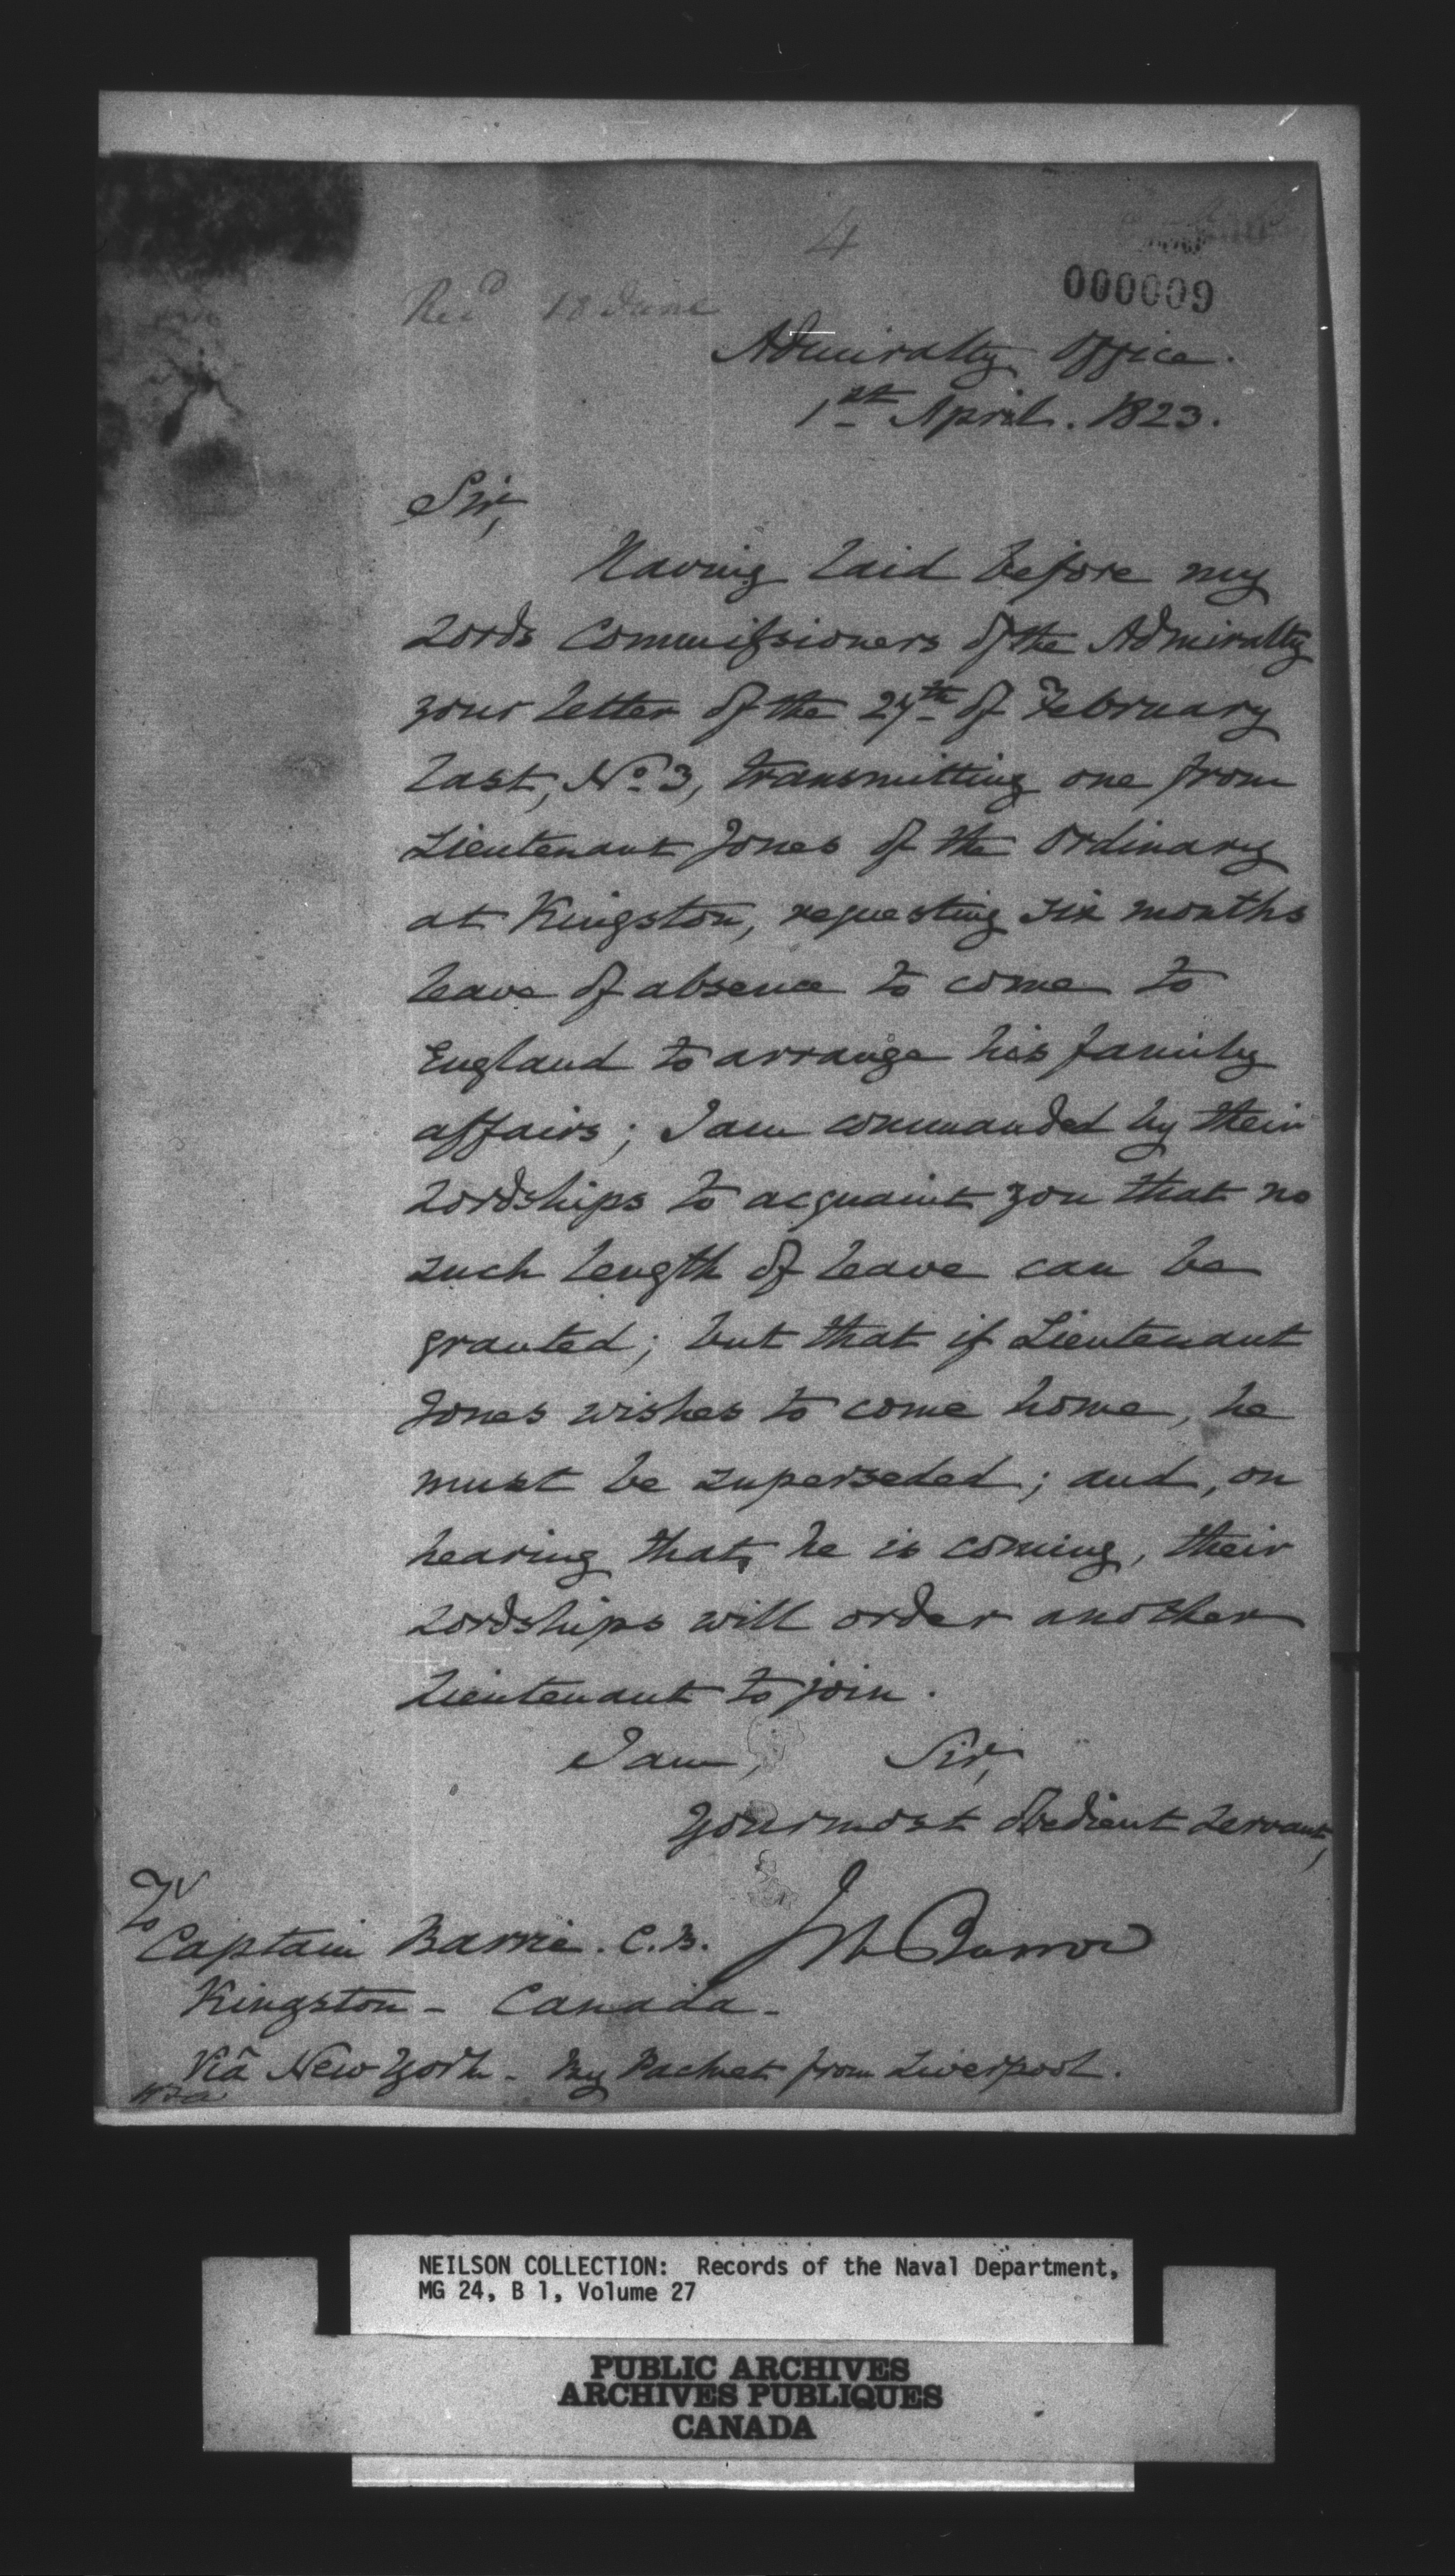 4
000009
Rec^d 18 June
Admiralty Office.
1st April. 1823.
Sir,
Having laid before my
Lords Commissioners of the Admiralty
your letter of the 27th of February
last, No. 3, transmitting one from
Lieutenant Jones of the Ordinary
at Kingston, requesting six months
leave of absence to come to
England to arrange his family
affairs; I am commanded by their
Lordships to acquaint you that no
such length of leave can be
granted; but that if Lieutenant
Jones wishes to come home, he
must be superseded; and, on
hearing that he is coming, their
Lordships will order another
Lieutenant to join.
I am, Sir,
Your most obedient Servant,
Jn Barrow
To
Captain Barrie. C.B.
Kingston - Canada -
Via New York - By Packet from Liverpool.
NEILSON COLLECTION: Records of the Naval Department,
MG 24, B 1, Volume 27
PUBLIC ARCHIVES
ARCHIVES PUBLIQUES
CANADA